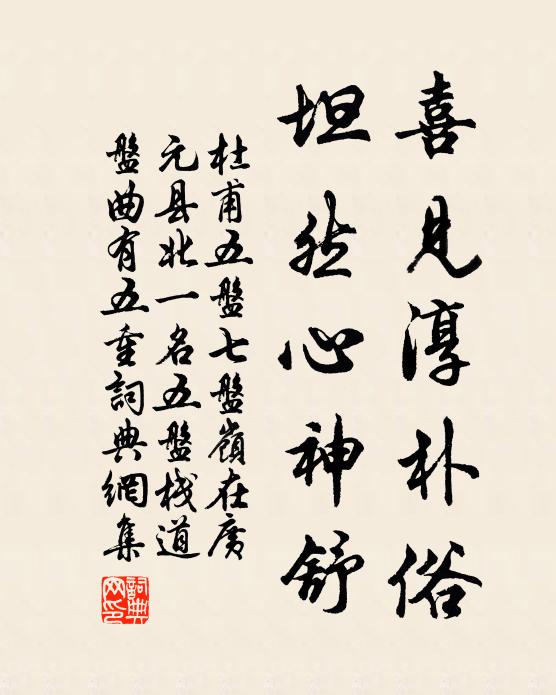 喜見淳朴俗
坦然心神舒
杜甫五盤七盤嶺在廣
元县北一名五盤栈道
盤曲有五重詞典網集
詞典
网印